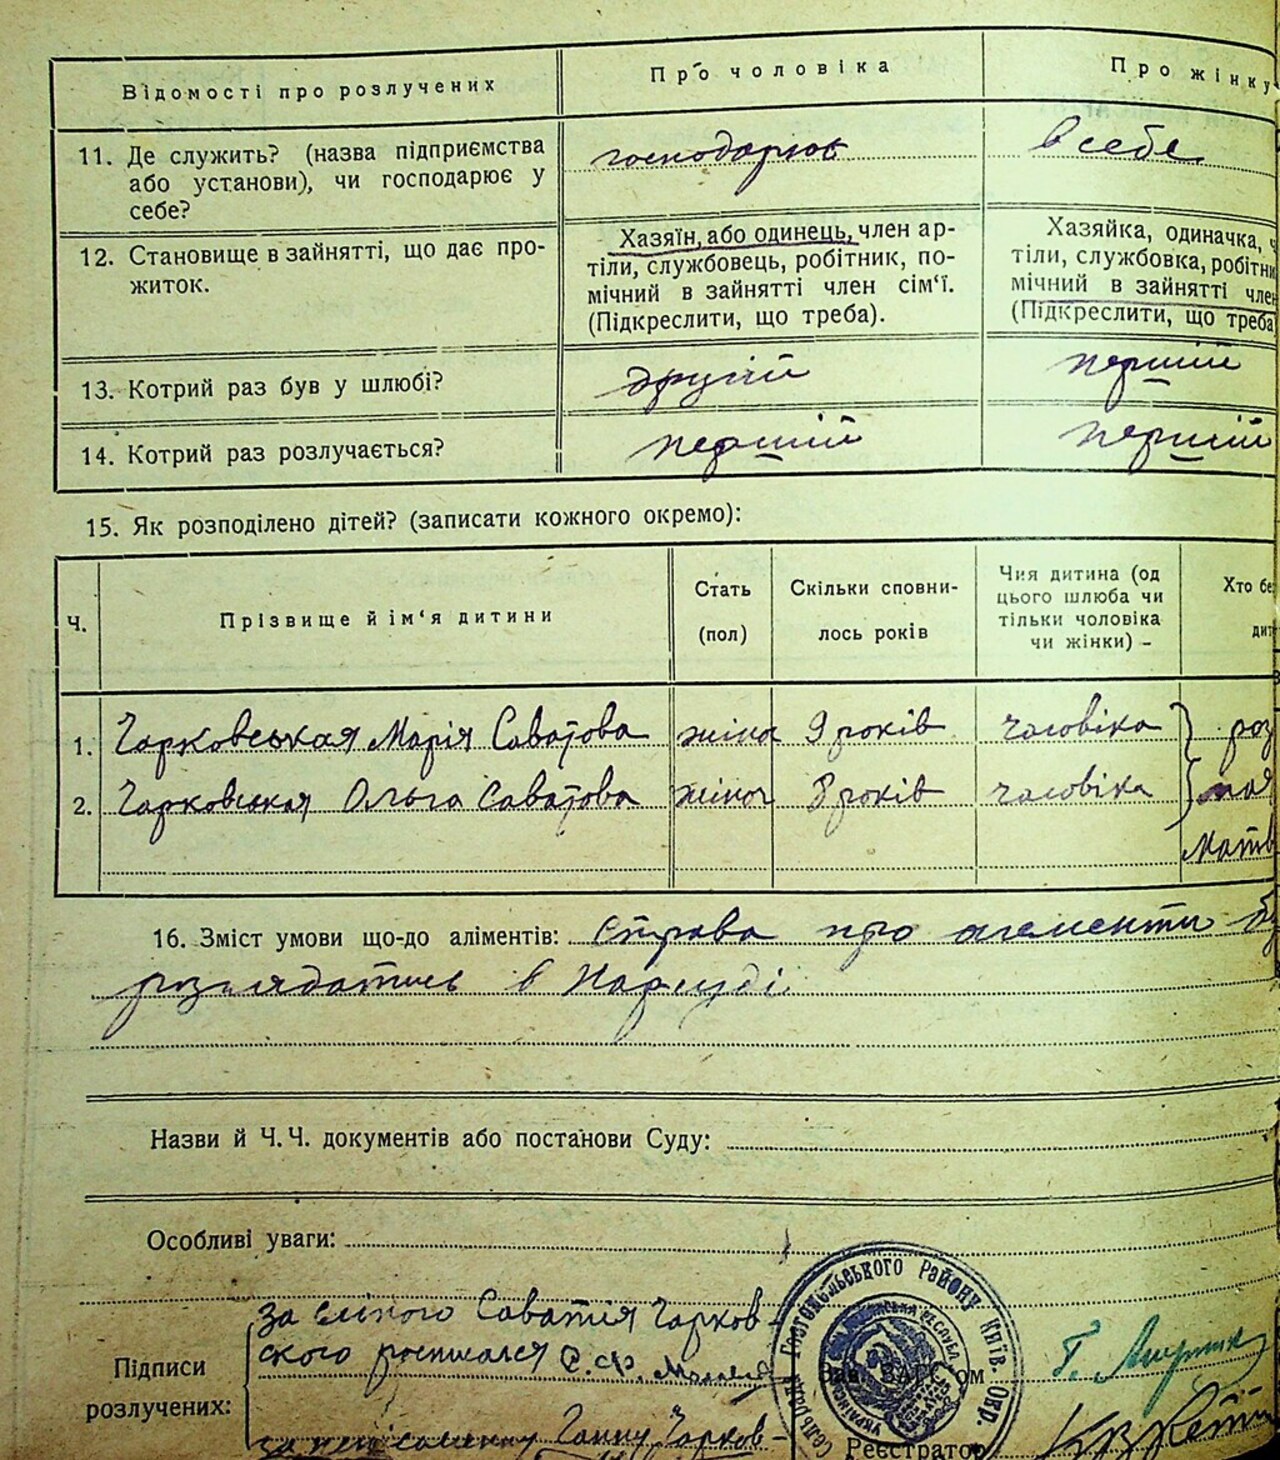 Відомості про розлучених
Про чоловіка
Про жінку
11. Де служить? (назва підприємства
або установи), чи господарює у
себе?
господарює
в себе
12. Становище в зайнятті, що дає про-
житок.
Хазяїн, або одинець, член ар-
тіли, службовець, робітник, по-
мічний в зайнятті член сім'ї.
(Підкреслити, що треба).
Хазяйка, одиначка, ч
тіли, службовка, робітни
мічний в зайнятті член
(Підкреслити, що треба
13. Котрий раз був у шлюбі?
другій
першій
14. Котрий раз розлучається?
першій
першій
15. Як розподілено дітей? (записати кожного окремо):
Ч.
Прізвище й ім'я дитини
Стать
(пол)
Скільки сповни-
лось років
Чия дитина (од
цього шлюба чи
тільки чоловіка
чи жінки) –
Хто бе
дит
1. Чарковськая Марія Саватова жіноч 9 років чоловіка роз
2. Чарковськая Ольга Саватова жіноч 8 років чоловіка
16. Зміст умови що-до аліментів: Справа про алементи
розглядатись в Нарсуді
Назви й Ч.Ч. документів або постанови Суду:
Особливі уваги:
Підписи
розлучених:
за сліпого Саватія Чарков-
ского росписался С. Ф.
за неписьменну Ганну Чарков-
Гостомельського району Київ. окр.
Зав. ЗАГС'ом
Реєстратор